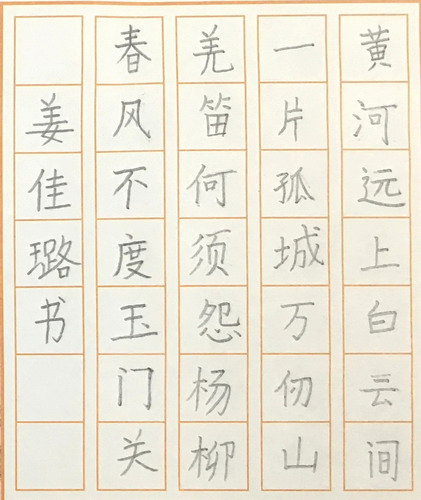 黄河远上白云间
一片孤城万仞山
羌笛何须怨杨柳
春风不度玉门关
姜佳璐书